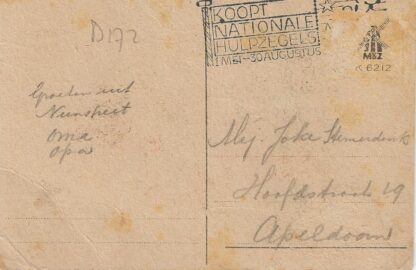 D172
KOOPT
NATIONALE
HULPZEGELS
1 MEI - 30 AUGUSTUS
M&Z
K 6212
Groeten uit
Nunspeet
Oma
Opa
Mej. Joke
Hoofdstraat 19
Apeldoorn